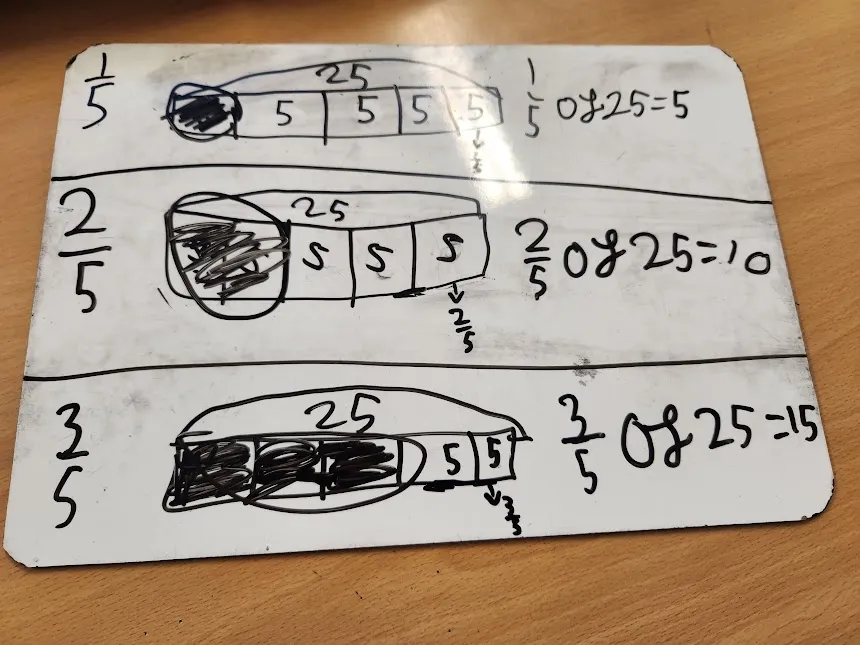 1/5
25
5 5 5 5
1/5 of 25=5
2/5
25
5 5 5
2/5
2/5 of 25=10
3/5
25
5 5
3/5
3/5 of 25=15